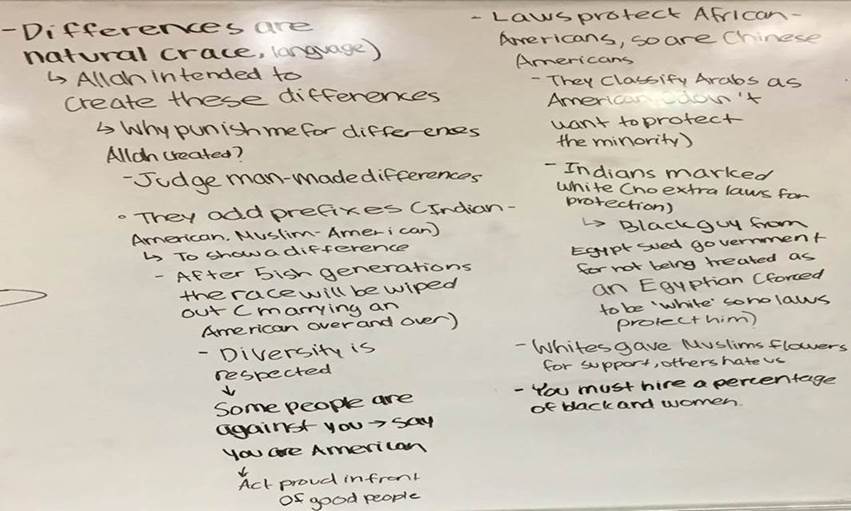 - Differences are
natural (race, language)
↳ Allah intended to
create these differences
↳ Why punish me for differences
Allah created?
- Judge man-made differences
• They add prefixes (Indian-
American, Muslim-American)
↳ To show a difference
- After 5ish generations
the race will be wiped
out (marrying an
American over and over)
- Diversity is
respected
↓
Some people are
against you → say
you are American
↓
Act proud in front
of good people
- Laws protect African-
Americans, so are Chinese
Americans
- They classify Arabs as
American don't
want to protect
the minority)
- Indians marked
white (no extra laws for
protection)
↳ Black guy from
Egypt sued government
for not being treated as
an Egyptian (forced
to be 'white' so no laws
protect him)
- Whites gave Muslims flowers
for support, others hate us
- You must hire a percentage
of black and women.